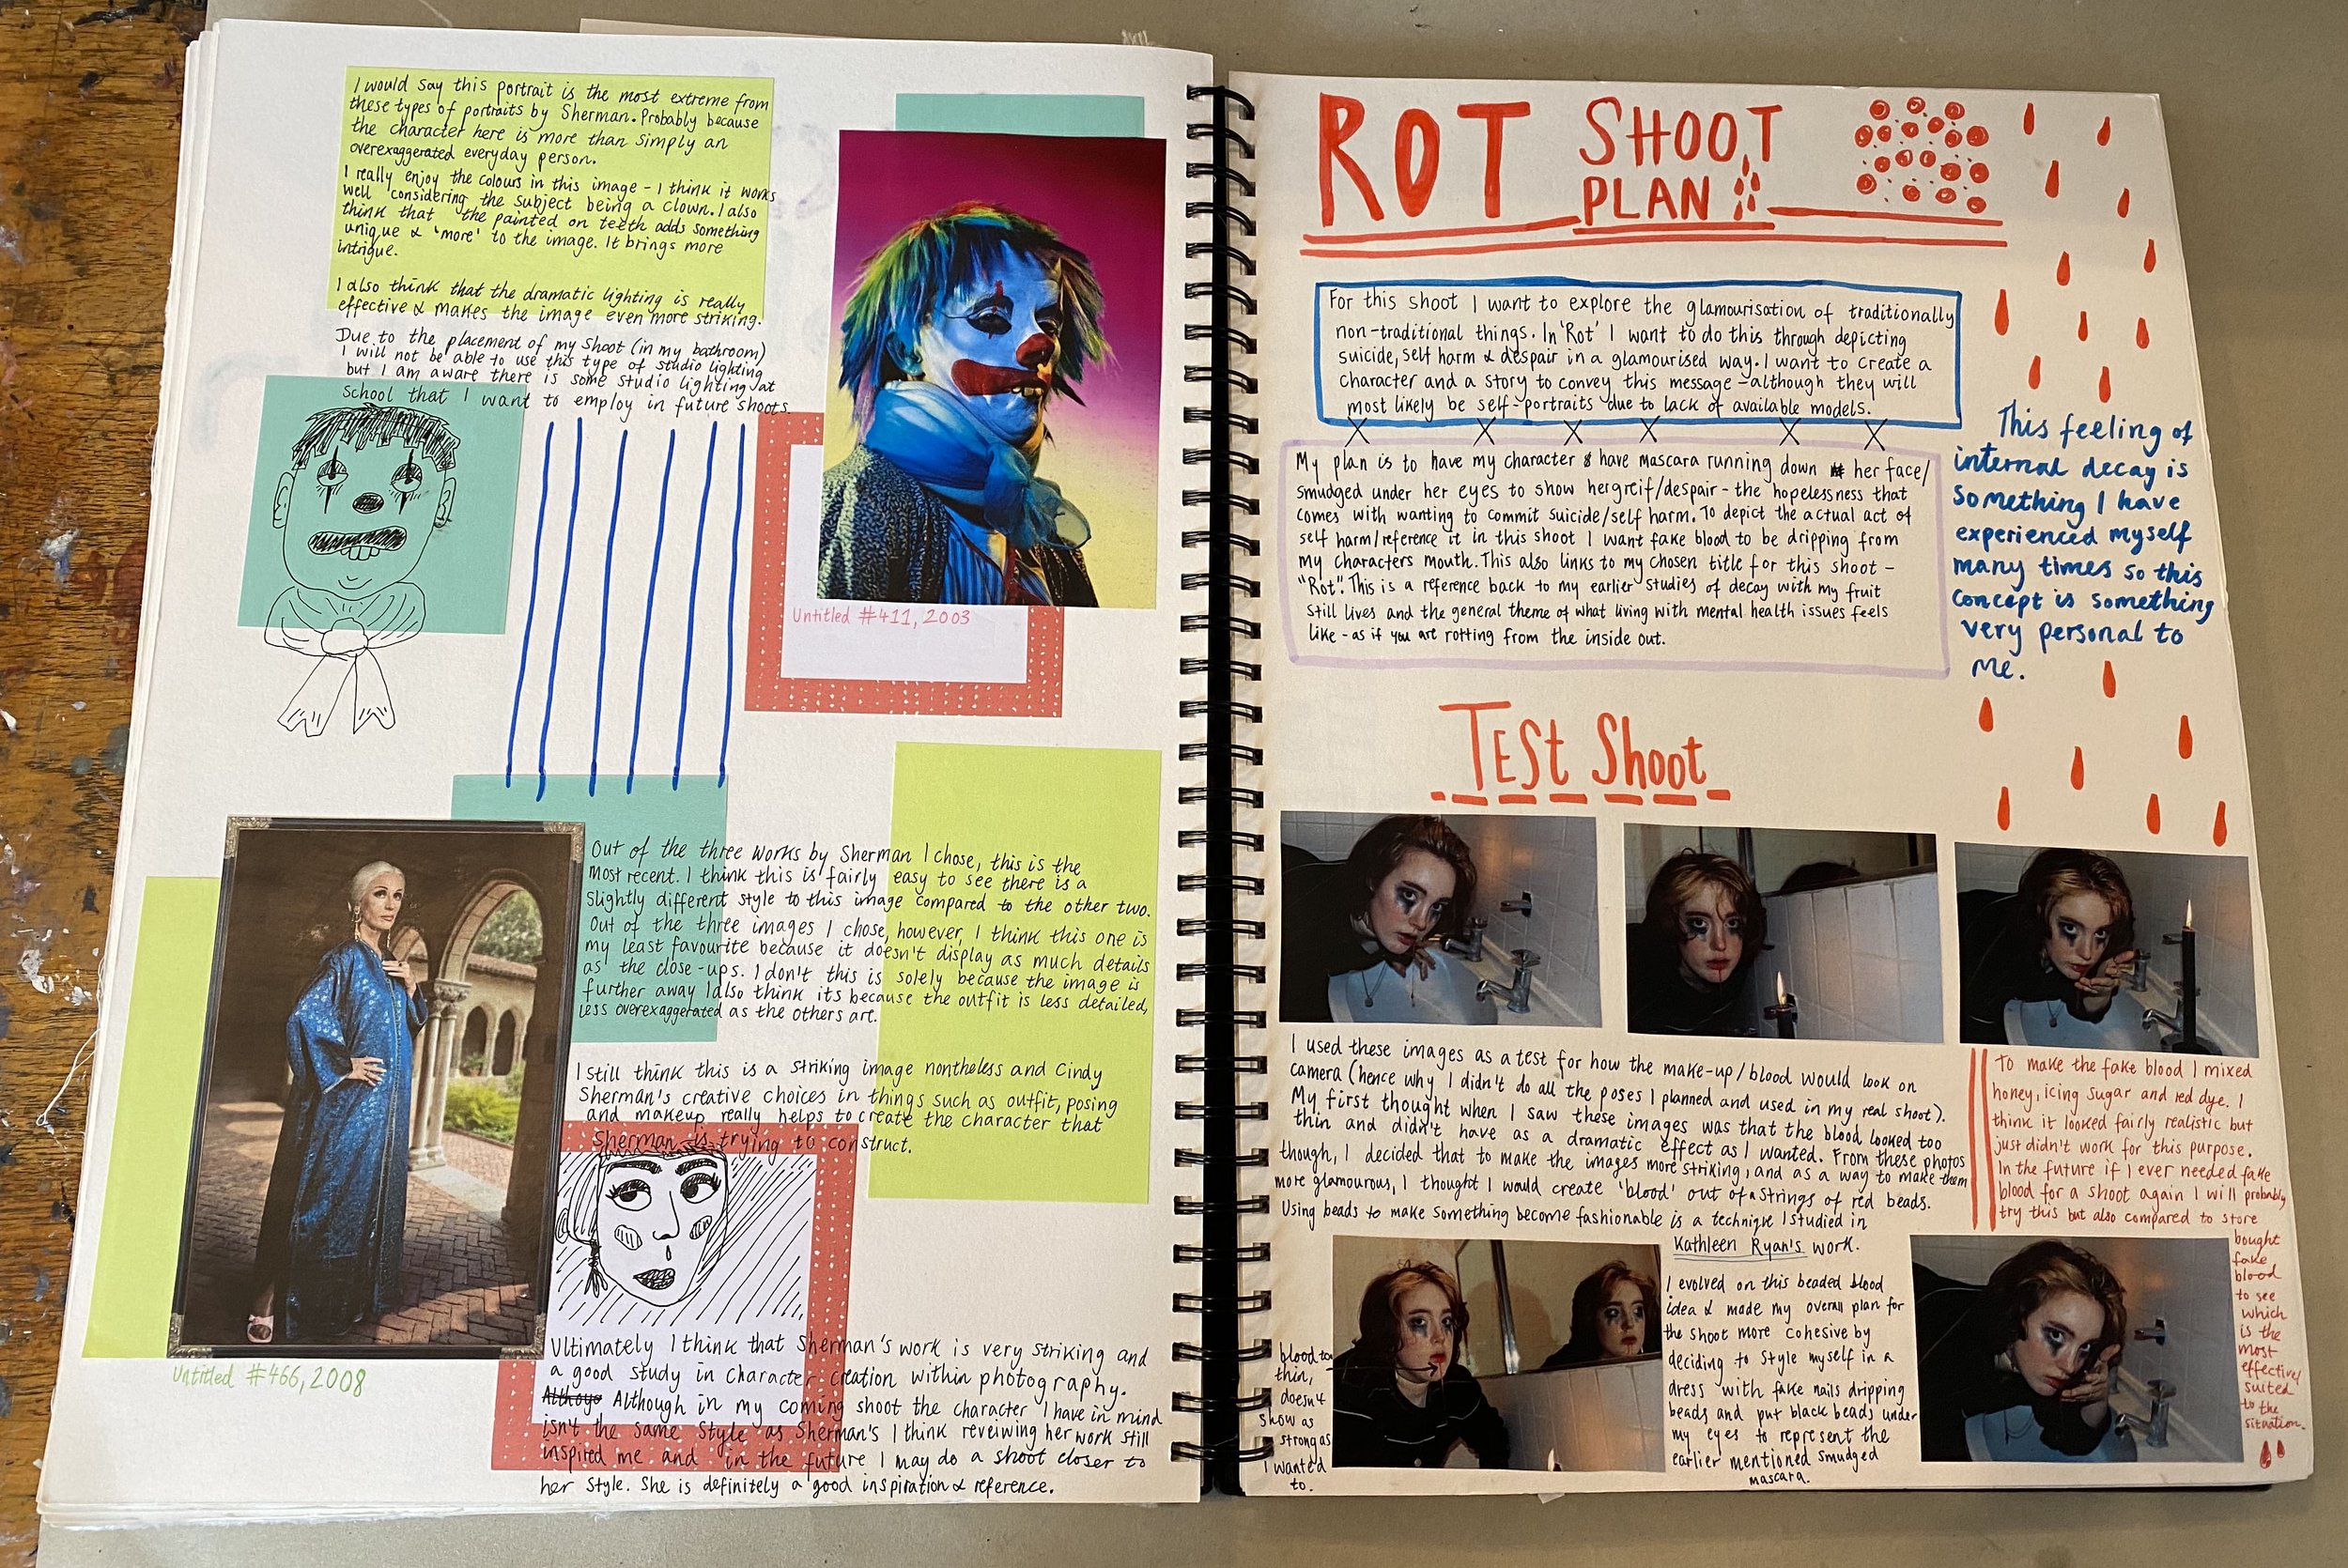 I would say this portrait is the most extreme from
these types of portraits by Sherman. Probably because
the character here is more than simply an
overexaggerated everyday person.
I really enjoy the colours in this image - I think it works
well considering the subject being a clown. I also
think that the painted on teeth adds something
unique & 'more' to the image. It brings more
intrigue.
I also think that the dramatic lighting is really
effective & makes the image even more striking.
Due to the placement of my shoot (in my bathroom)
I will not be able to use this type of studio lighting
but I am aware there is some studio lighting at
school that I want to employ in future shoots.
Untitled #411, 2003
Out of the three works by Sherman I chose, this is the
most recent. I think this is fairly easy to see there is a
slightly different style to this image compared to the other two.
Out of the three images I chose, however, I think this one is
my least favourite because it doesn't display as much details
as the close-ups. I don't this is solely because the image is
further away I also think its because the outfit is less detailed,
less overexaggerated as the others are.
I still think this is a striking image nontheless and Cindy
Sherman's creative choices in things such as outfit, posing
and makeup really helps to create the character that
Sherman is trying to construct.
Untitled #466, 2008
Ultimately I think that Sherman's work is very striking and
a good study in character creation within photography.
Although in my coming shoot the character I have in mind
isn't the same style as Sherman's I think reveiwing her work still
inspired me and in the future I may do a shoot closer to
her style. She is definitely a good inspiration & reference.
ROT SHOOT
PLAN
For this shoot I want to explore the glamourisation of traditionally
non-traditional things. In 'Rot' I want to do this through depicting
suicide, self harm & despair in a glamourised way. I want to create a
character and a story to convey this message - although they will
most likely be self-portraits due to lack of available models.
My plan is to have my character have mascara running down her face/
smudged under her eyes to show her greif/despair - the hopelessness that
comes with wanting to commit suicide/self harm. To depict the actual act of
self harm/reference it in this shoot I want fake blood to be dripping from
my characters mouth. This also links to my chosen title for this shoot -
"Rot". This is a reference back to my earlier studies of decay with my fruit
still lives and the general theme of what living with mental health issues feels
like - as if you are rotting from the inside out.
This feeling of
internal decay is
something I have
experienced myself
many times so this
concept is something
very personal to
me.
TEST Shoot
I used these images as a test for how the make-up/blood would look on
camera (hence why I didn't do all the poses I planned and used in my real shoot).
My first thought when I saw these images was that the blood looked too
thin and didn't have as a dramatic effect as I wanted. From these photos
though, I decided that to make the images more striking, and as a way to make them
more glamourous, I thought I would create 'blood' out of a strings of red beads.
Using beads to make something become fashionable is a technique I studied in
Kathleen Ryan's work.
I evolved on this beaded blood
idea & made my overall plan for
the shoot more cohesive by
deciding to style myself in a
dress with fake nails dripping
beads and put black beads under
my eyes to represent the
earlier mentioned smudged
mascara.
blood too
thin,
doesn't
show as
strong as
I wanted
to.
To make the fake blood I mixed
honey, icing sugar and red dye. I
think it looked fairly realistic but
just didn't work for this purpose.
In the future if I ever needed fake
blood for a shoot again I will probably
try this but also compared to store
bought
fake
blood
to see
which
is the
most
effective/
suited
to the
situation.